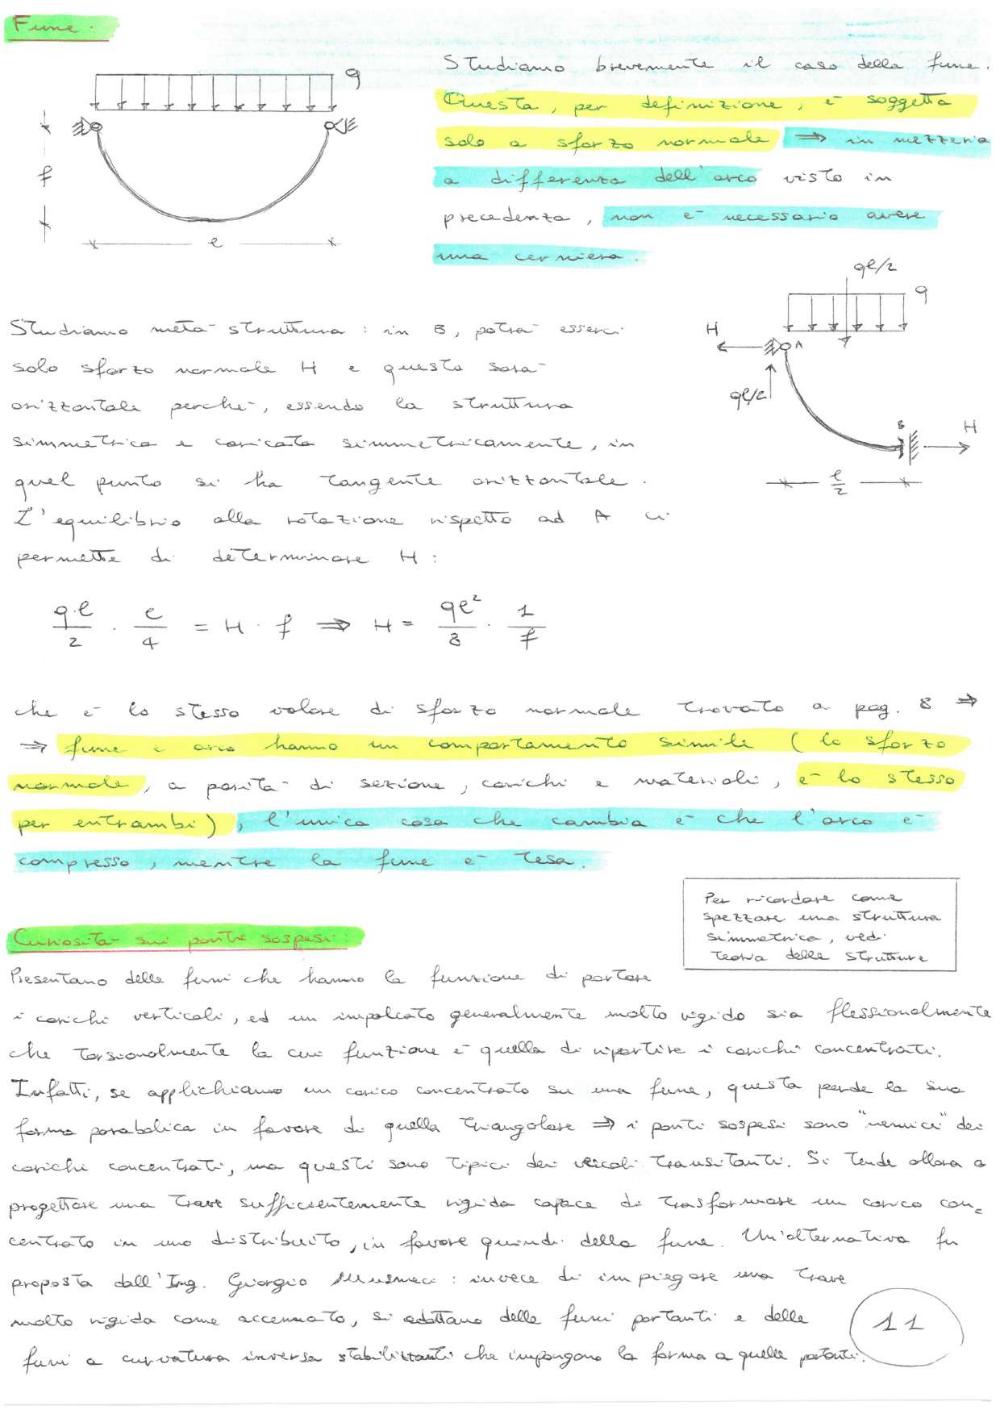 Fune.
q
f
l
Studiamo brevemente il caso della fune.
Questa, per definizione, è soggetta
solo a sforzo normale ⇒ in mezzeria
a differenza dell'arco visto in
precedenza, non è necessario avere
una cerniera.
ql/2
q
H
A
ql/2
B
H
l/2
Studiamo metà struttura: in B, potrà esserci
solo sforzo normale H e questo sarà
orizzontale perché, essendo la struttura
simmetrica e caricata simmetricamente, in
quel punto si ha tangente orizzontale.
L'equilibrio alla rotazione rispetto ad A ci
permette di determinare H:
q·l/2 · l/4 = H · f ⇒ H = ql²/8 · 1/f
che è lo stesso valore di sforzo normale trovato a pag. 8 ⇒
⇒ fune e arco hanno un comportamento simile (lo sforzo
normale, a parità di sezione, carichi e materiali, è lo stesso
per entrambi), l'unica cosa che cambia è che l'arco è
compresso, mentre la fune è tesa.
Per ricordare come
spezzare una struttura
simmetrica, vedi
teoria delle strutture
Curiosità sui ponti sospesi:
Presentano delle funi che hanno la funzione di portare
i carichi verticali, ed un impalcato generalmente molto rigido sia flessionalmente
che torsionalmente la cui funzione è quella di ripartire i carichi concentrati.
Infatti, se applichiamo un carico concentrato su una fune, questa perde la sua
forma parabolica in favore di quella triangolare ⇒ i ponti sospesi sono "nemici" dei
carichi concentrati, ma questi sono tipici dei veicoli transitanti. Si tende allora a
progettare una trave sufficientemente rigida capace di trasformare un carico con=
centrato in uno distribuito, in favore quindi della fune. Un'alternativa fu
proposta dall'Ing. Giorgio Musmeci: invece di impiegare una trave
molto rigida come accennato, si adottano delle funi portanti e delle
funi a curvatura inversa stabilizzanti che impongono la forma a quelle portanti.
11